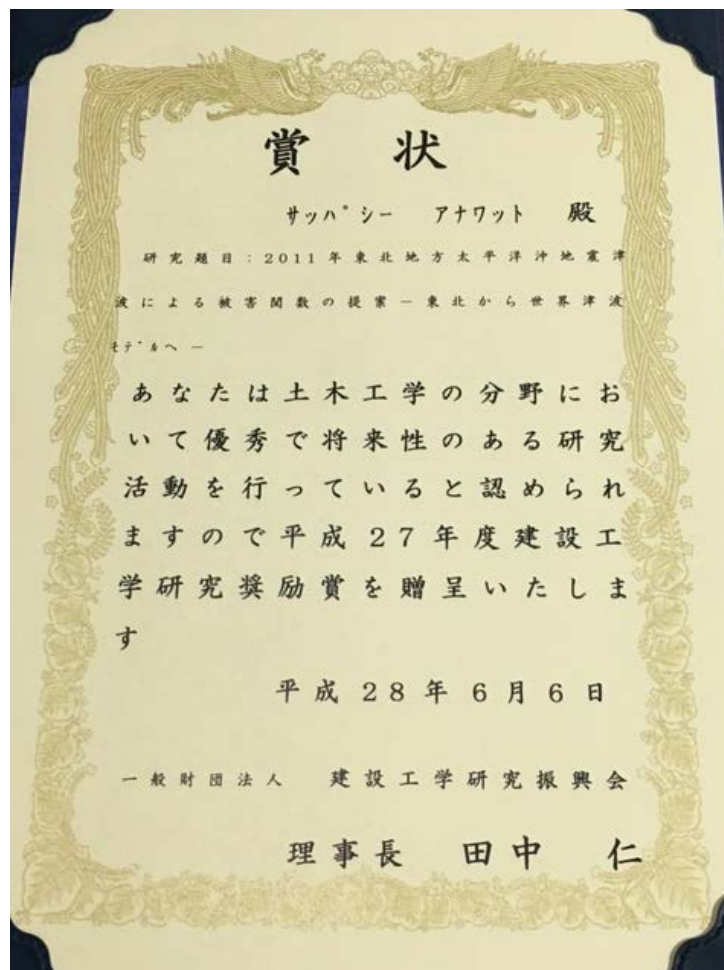 賞 状
サッパシー アナワット 殿
研究題目：2011年東北地方太平洋沖地震津
波による被害関数の提案－東北から世界津波
モデルへ－
あなたは土木工学の分野にお
いて優秀で将来性のある研究
活動を行っていると認められ
ますので平成27年度建設工
学研究奨励賞を贈呈いたしま
す
平成28年6月6日
一般財団法人 建設工学研究振興会
理事長 田中 仁